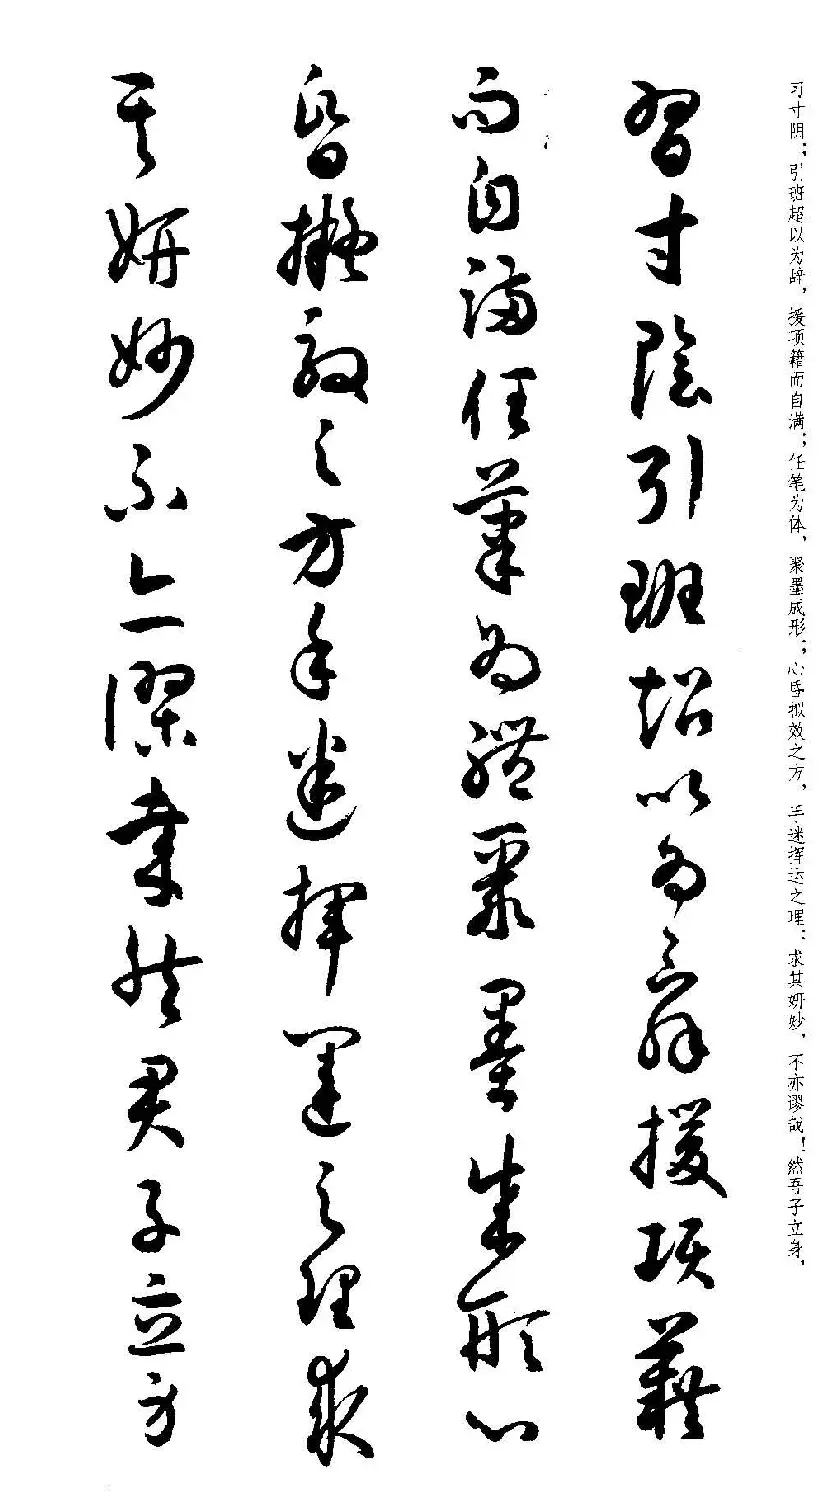 习寸阴；引班超以为辞，援项籍而自满；任笔为体，聚墨成形；心昏拟效之方，手迷挥运之理；求其妍妙，不亦谬哉！然君子立身，
習寸陰引班超以為辭援項籍
而自滿任筆為體聚墨成形心
昏擬效之方手迷揮運之理求
其妍妙不亦謬哉然君子立身